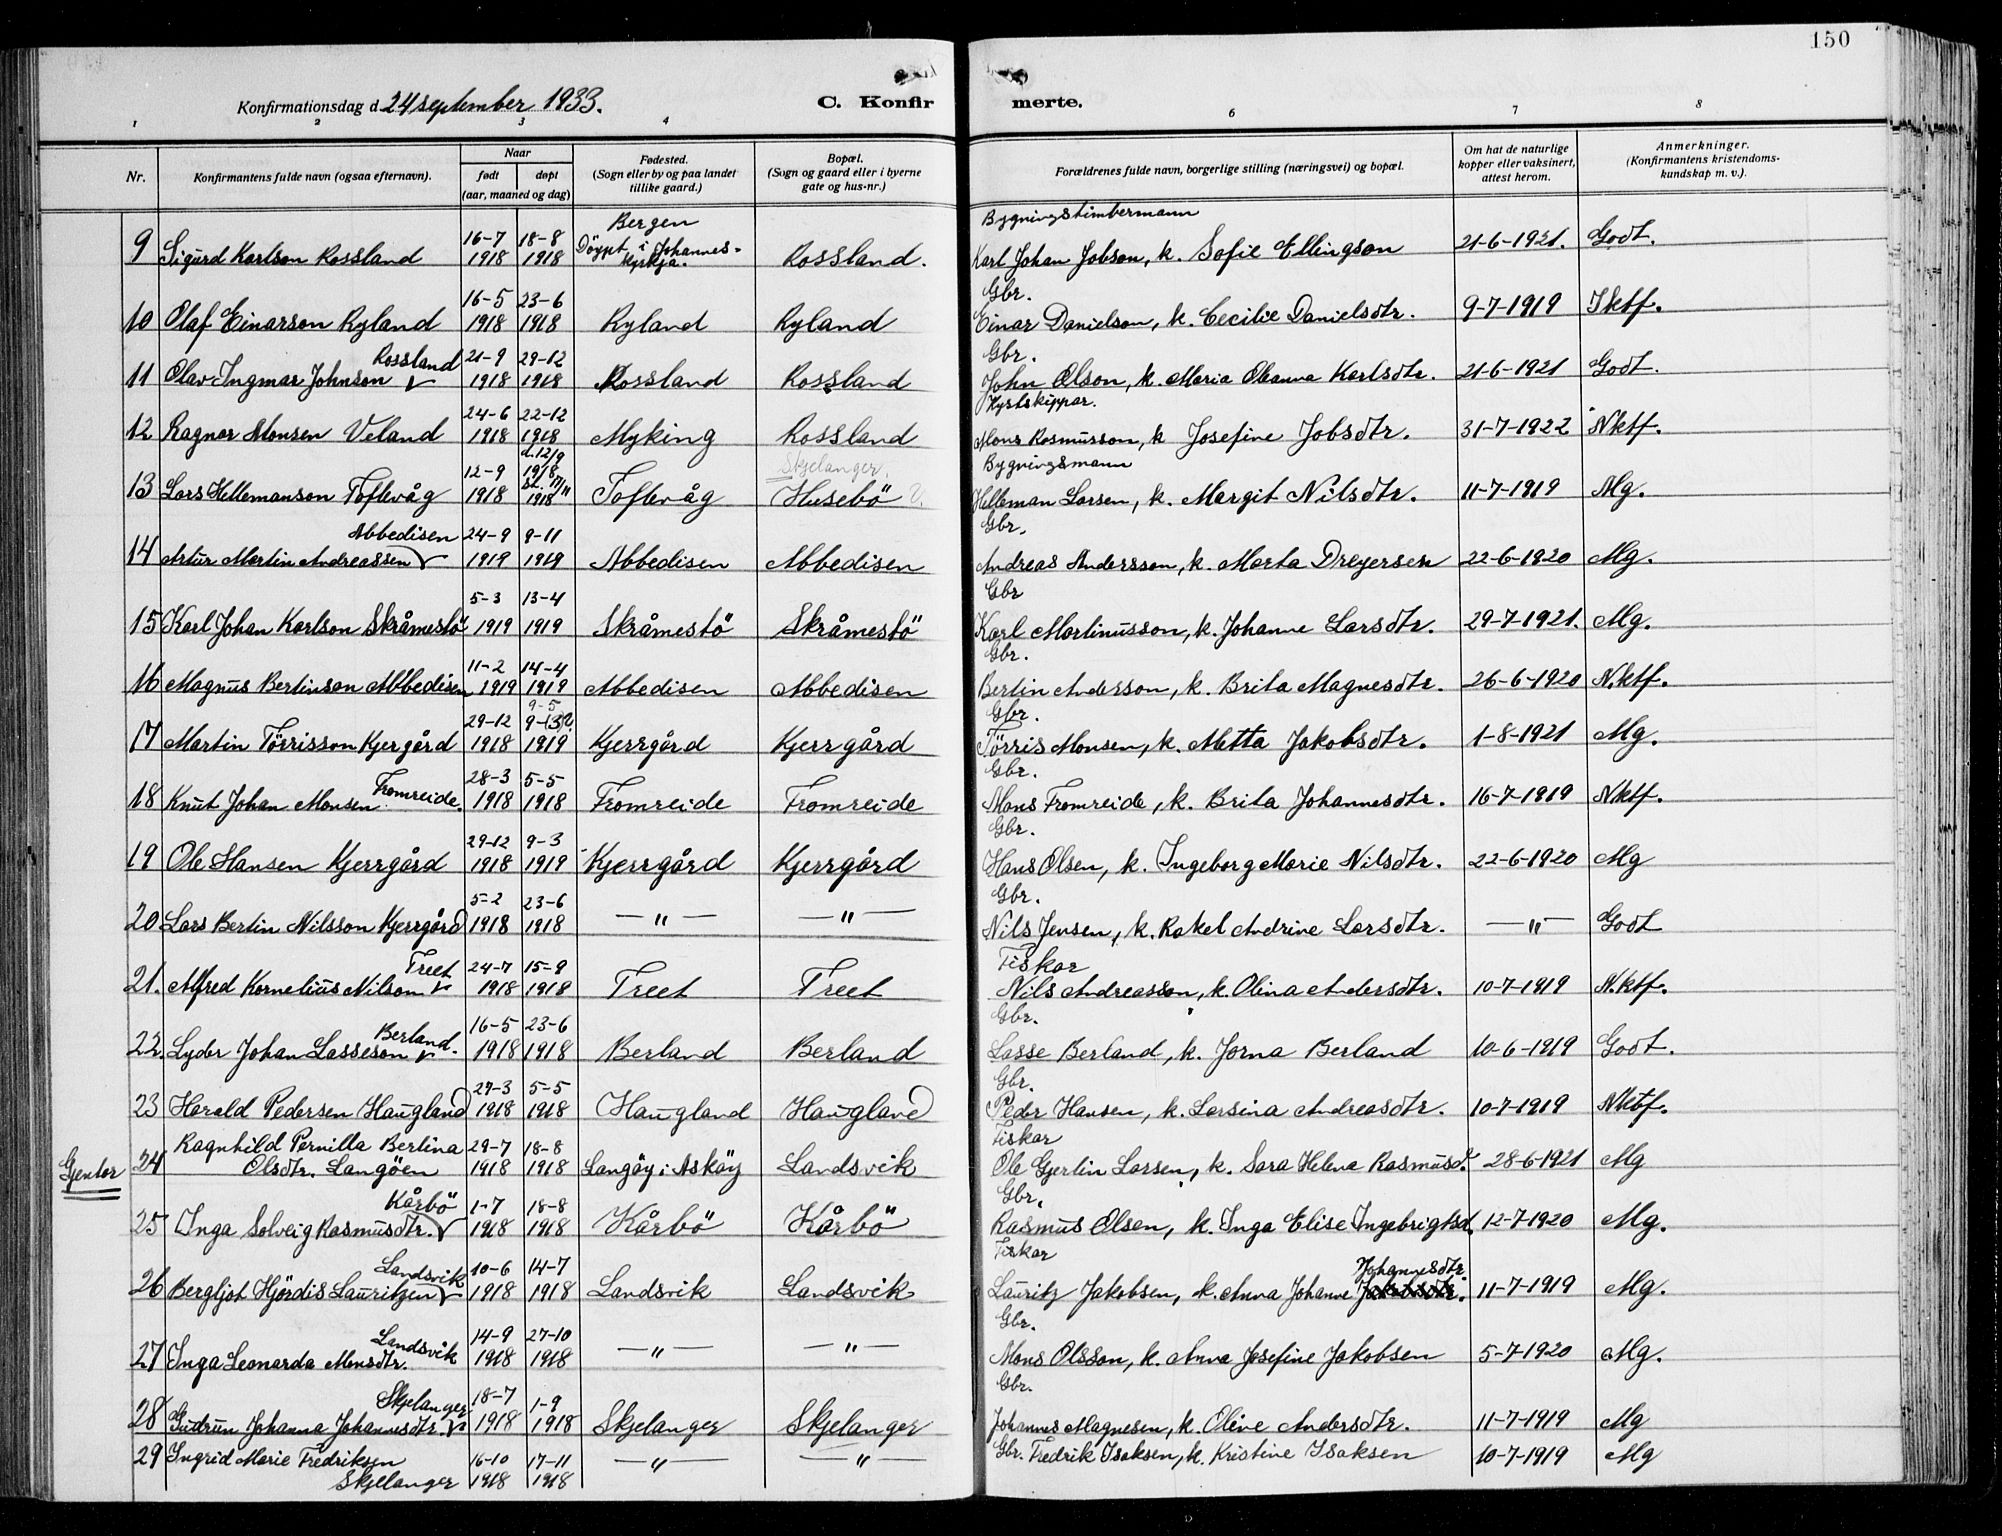 150
Konfirmationsdag d. 24 september 1933. C. Konfir merte.
1 2 3 4 6 7 8
Nr. Konfirmantens fulde navn (ogsaa efternavn). Naar født døpt (aar, maaned og dag) Fødested. (Sogn eller by og paa landet tillike gaard.) Bopæl. (Sogn og gaard eller i byerne gate og hus-nr.) Forældrenes fulde navn, borgerlige stilling (næringsvei) og bopæl. Om hat de naturlige kopper eller vaksinert, attest herom. Anmerkninger. (Konfirmantens kristendoms-kundskap m. v.).
Bergen Bygningstimbermann
9 Sigurd Karlson Rossland 16-7 1918 18-8 1918 Döypt i Johannes-kyrkja. Rossland. Karl Johan Jobson, k. Sofie Ellingson 21-6-1921. Godt.
Gbr.
10 Olaf Einarson Ryland 16-5 1918 23-6 1918 Ryland Ryland Einar Danielson, k. Cecilie Danielsdtr. 9-7-1919 Iktf.
Gbr.
11 Olav Ingmar Johnson Rossland 21-9 1918 29-12 1918 Rossland Rossland John Olson, k. Maria Oleanna Karlsdtr. 21-6-1921 Godt.
12 Ragnar Monsen Veland 24-6 1918 22-12 1918 Myking Rossland Mons Rasmusson, k Josefine Jobsdtr. 31-7-1922 Nktf.
d. 12/9 Skjelanger. Bygningsmann
13 Lars Hellemanson Toflevåg 12-9 1918 1918 st. 17/11 1918 Toflevåg Husebö ? Helleman Larsen, k. Margit Nilsdtr. 11-7-1919 Mg.
Gbr.
14 Artur Martin Andreassen Abbedisen 24-9 1919 9-11 1919 Abbedisen Abbedisen Andreas Andersson, k. Marta Dreyersen 22-6-1920 Mg.
Gbr
15 Karl Johan Karlson Skråmestö 5-3 1919 13-4 1919 Skråmestö Skråmestö Karl Martinusson, k. Johanne Larsdtr. 29-7-1921. Mg.
Gbr.
16 Magnus Bertinson Abbedisen 11-2 1919 14-4 1919 Abbedisen Abbedisen Bertin Andersson, k. Brita Magnesdtr. 26-6-1920 N.ktf.
9-5 Gbr.
17 Martin Törrisson Kjergård 29-12 1918 9-(3? 1919 Kjerrgård Kjerrgård Törris Monsen, k. Metta Jakobsdtr. 1-8-1921 Mg.
Gbr.
18 Knut Johan Monsen Fromreide. 28-3 1918 5-5 1918 Fromreide Fromreide Mons Fromreide, k. Brita Johannesdtr. 16-7-1919 Nktf.
Gbr.
19 Ole Hansen Kjerrgård 29-12 1918 9-3 1919 Kjerrgård Kjerrgård Hans Olsen, k. Ingeborg Marie Nilsdtr. 22-6-1920 Mg
Gbr.
20 Lars Bertin Nilsson Kjerrgård 5-2 1918 23-6 1918 —"— —"— Nils Jensen, k. Rakel Andrine Larsdtr. —"— Godt
Fiskar
21. Alfred Kornelius Nilson Treet 24-7 1918 15-9 1918 Treet Treet Nils Andreasson, k. Olina Andersdtr. 10-7-1919 N.ktf.
Gbr.
22. Lyder Johan Lasseson Berland. 16-5 1918 23-6 1918 Berland Berland Lasse Berland, k. Jorna Berland 10-6-1919 Godt.
Gbr.
23 Harald Pedersen Haugland 27-3 1918 5-5 1918 Haugland Haugland Peder Hansen, k. Larsina Andreasdtr. 10-7-1919 Nktf.
Fiskar
Gjentor 24 Ragnhild Pernilla Bertina Olsdtr. Langöen 29-7 1918 18-8 1918 Langöy i Asköy Landsvik Ole Gjertin Larsen, k. Sara Helena Rasmusd. 28-6-1921 Mg
Gbr.
25 Inga Solveig Rasmusdtr. Kårbö 1-7 1918 18-8 1918 Kårbö Kårbö Rasmus Olsen, k. Inga Elise Ingebrigtsd. 12-7-1920 Mg.
Fiskar Johannesdtr.
26 Bergljot Hjördis Lauritzen Landsvik 10-6 1918 14-7 1918 Landsvik Landsvik Lauritz Jakobsen, k. Anna Johanne Jakobsdtr. 11-7-1919 Mg.
Gbr.
27 Inga Leonarda Monsdtr. Landsvik 14-9 1918 27-10 1918 —"— —"— Mons Olsson, k. Anna Josefine Jakobsen 5-7-1920 Mg.
Gbr.
28 Gudrun Johanna Johannesdtr. Skjelanger 18-7 1918 1-9 1918 Skjelanger Skjelanger Johannes Magnesen, k. Oline Andersdtr. 11-7-1919 Mg
29 Ingrid Marie Fredriksen Skjelanger 16-10 1918 17-11 1918 —"— —"— Gbr. Fredrik Isaksen, k. Kristine Isaksen 10-7-1919 Mg